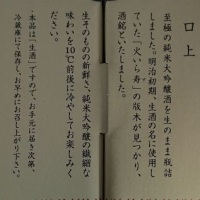 口上
至極の純米大吟醸酒を生のまま瓶詰
しました。明治初期、生酒の名に使用し
ていた「火いら寿」の版木が見つかり、
酒銘といたしました。
生そのものの新鮮さ、純米大吟醸の繊細な
味わいを10℃前後に冷やしてお楽しみく
ださい。
・本品は「生酒」ですので、お手元に届き次第、
冷蔵庫にて保存し、お早めにお召し上がり下さい。